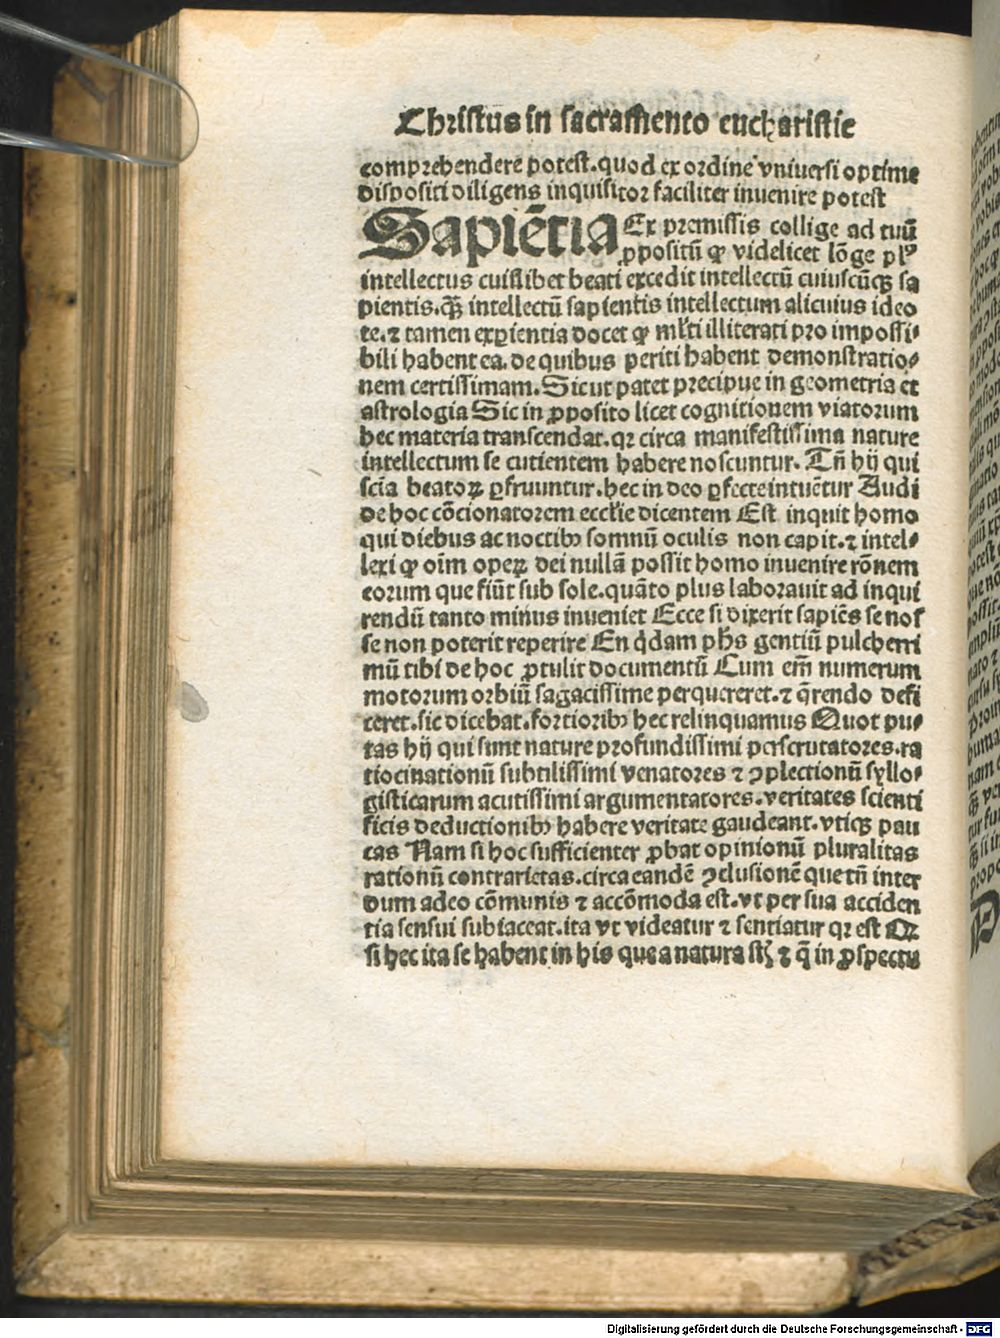 Christus in sacramento eucharistie
comprehendere potest. quod ex ordine vniuersi optime
dispositi diligens inquisitor faciliter inuenire potest
Sapiẽtia Ex premissis collige ad tuũ
ꝓpositũ ꝙ videlicet lõge plꝰ
intellectus cuiuslibet beati excedit intellectũ cuiuscũqꝫ sa
pientis. qꝫ intellectũ sapientis intellectum alicuius ideo
te. ⁊ tamen exꝑientia docet ꝙ ml̃ti illiterati pro impossi⸗
bili habent ea. de quibus periti habent demonstratio⸗
nem certissimam. Sicut patet precipue in geometria et
astrologia Sic in ꝓposito licet cognitionem viatorum
hec materia transcendat. qꝛ circa manifestissima nature
intellectum se cutientem habere noscuntur. Tñ hij qui
scĩa beatoꝝ ꝑfruuntur. hec in deo ꝑfecte intuẽtur Audi
de hoc cõcionatorem eccl̃ie dicentem Est inquit homo
qui diebus ac noctibꝰ somnũ oculis non capit. ⁊ intel⸗
lexi ꝙ oĩm opeꝝ dei nullã possit homo inuenire rõnem
eorum que fiũt sub sole. quãto plus laborauit ad inqui
rendũ tanto minus inueniet Ecce si dixerit sapiẽs se nosse
se non poterit reperire En q̃dam ph̃s gentiũ pulcherri
mũ tibi de hoc ꝓtulit documentũ Cum em̃ numerum
motorum orbiũ sagacissime perquereret. ⁊ q̃rendo defi
ceret. sic dicebat. fortioribꝰ hec relinquamus Quot pu⸗
tas hij qui sunt nature profundissimi perscrutatores. ra
tiocinationũ subtilissimi venatores ⁊ ꝯplectionũ syllo⸗
gisticarum acutissimi argumentatores. veritates scienti
ficis deductionibꝰ habere veritate gaudeant. vtiqꝫ pau
cas Nam si hoc sufficienter ꝓbat opinionũ pluralitas
rationũ contrarietas. circa eandẽ ꝯclusionẽ que tñ inter
dum adeo cõmunis ⁊ accõmoda est. vt per sua acciden
tia sensui subiaceat. ita vt videatur ⁊ sentiatur qꝛ est Qꝛ
si hec ita se habent in his que a natura st̃ ⁊ q̃ in ꝓspectu
Digitalisierung gefördert durch die Deutsche Forschungsgemeinschaft - DFG